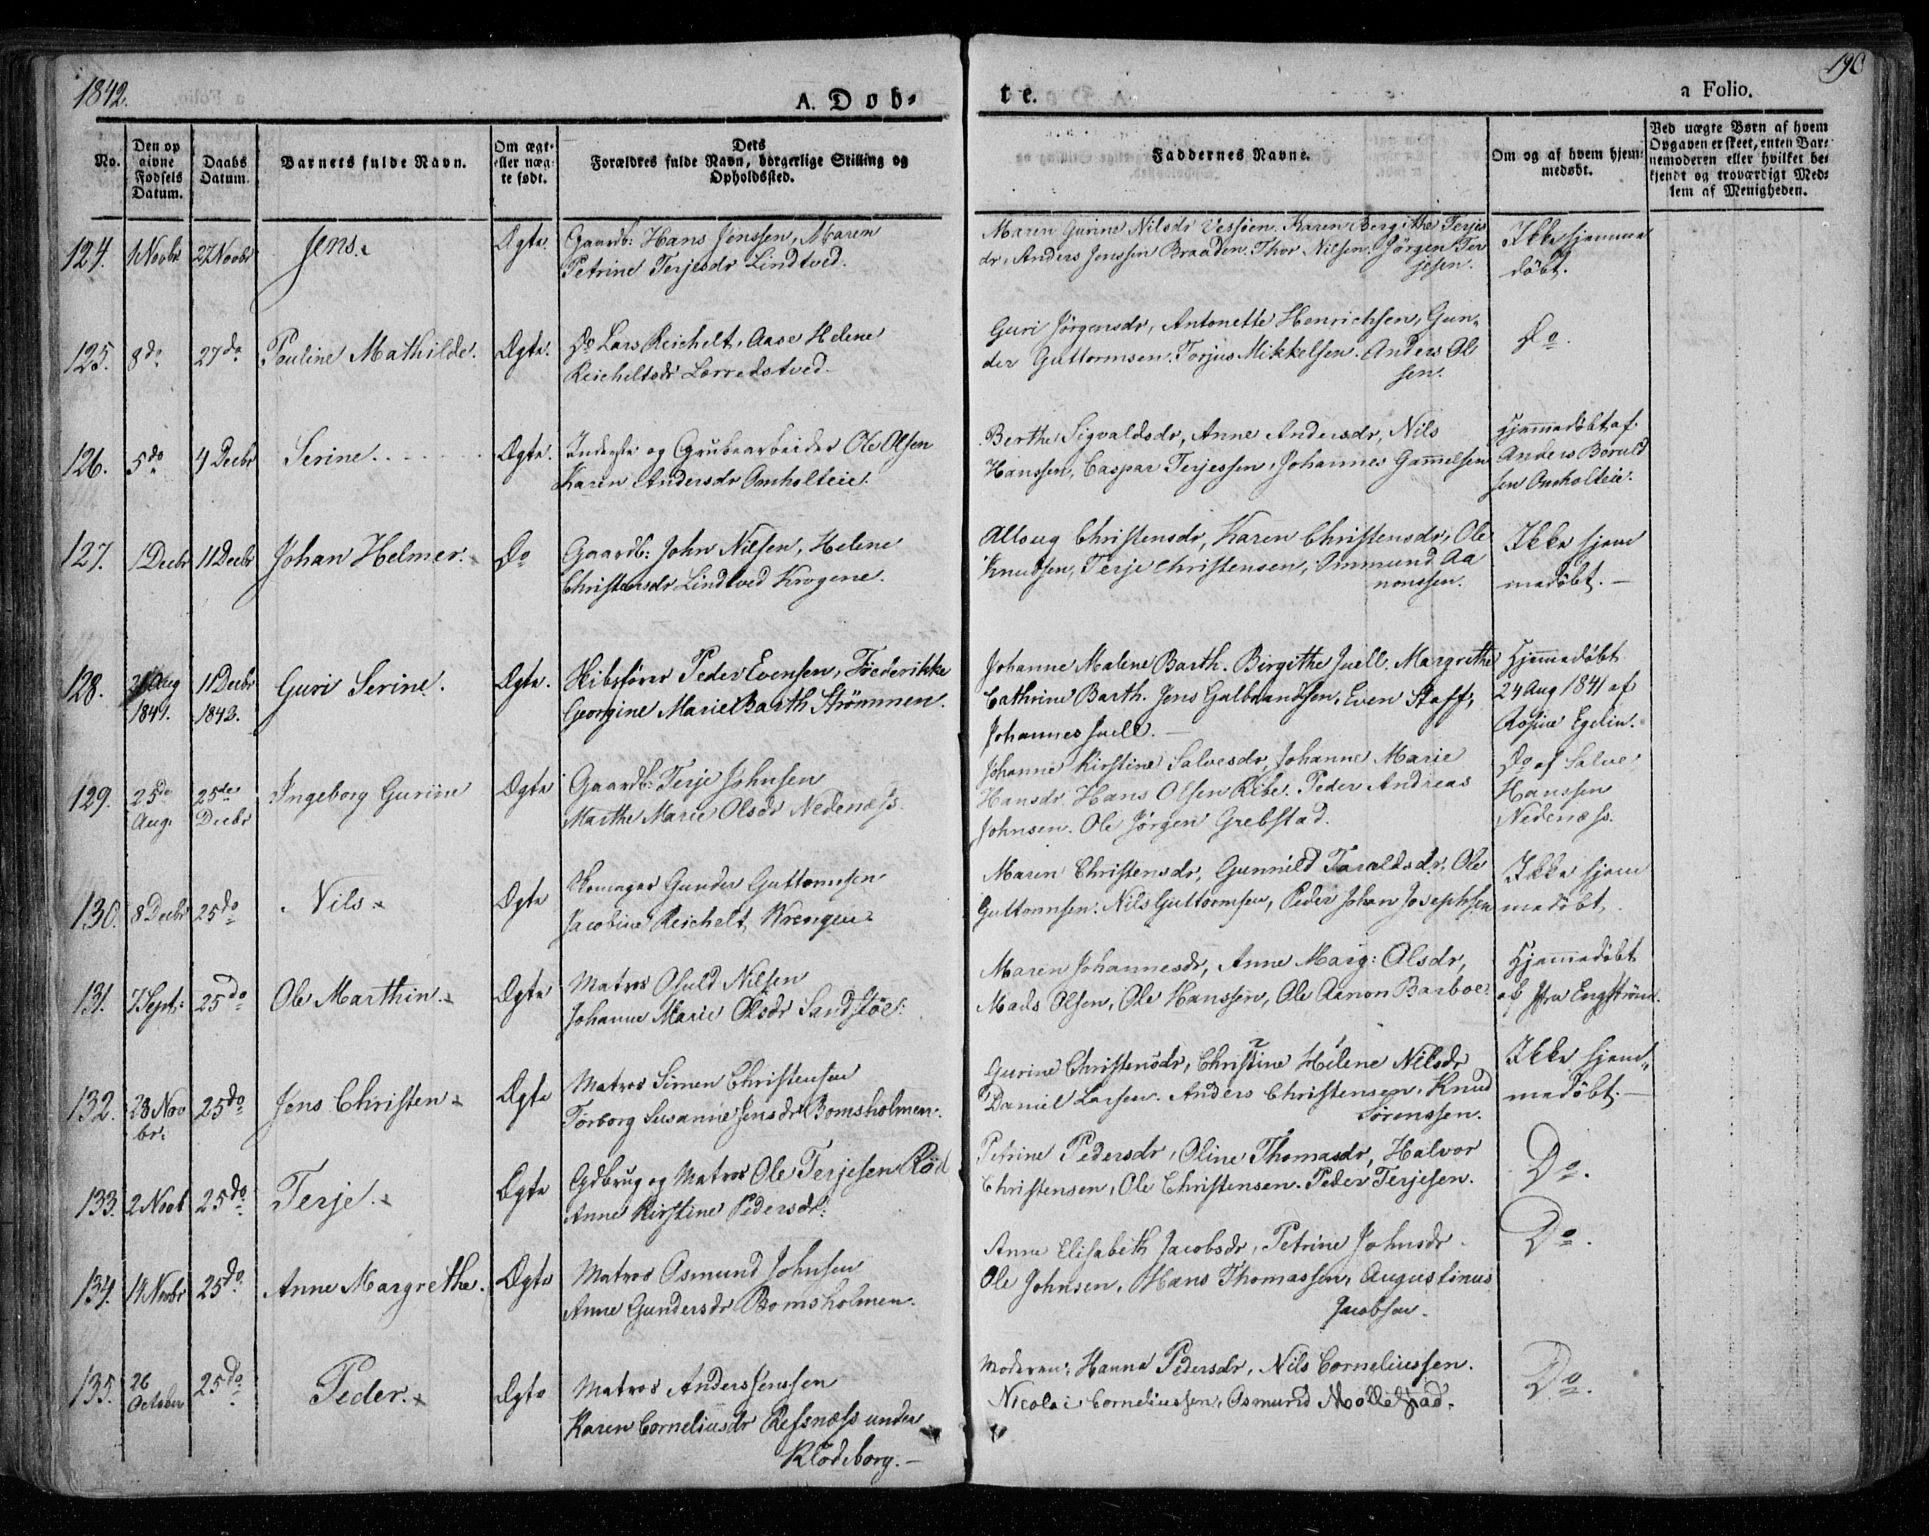 1842.
A. Døb-
te.
190
a Folio.
No.
Den op
givne
Fødsels
Datum.
Daabs
Datum.
Barnets fulde Navn.
Om ægt-
eller uæg-
te født.
Dets
Forældres fulde Navn, borgerlige Stilling og
Opholdssted.
Faddernes Navne.
Om og af hvem hjem-
medøbt.
Ved uægte Børn af hvem
Opgaven er skeet, enten Bar-
nemoderen eller hvilket be-
kjendt og troværdigt Med-
lem af Menigheden.
124. 1 Novbr 27 Novbr Jens. Ægte. Gaardb: Hans Jenssen, Maren
Petrine Terjesdr Lindtved.
Maren Gurine Nilsdr Vessøen. Karen Bergithe Terjes
dr, Anders Jensen Braaden. Thor Nilsen. Jørgen Ter
jesen.
Ikke hjemme
døbt.
125. 8 do 27 do Pauline Mathilde. Ægte. Do Lars Reichelt, Aase Helene
Reicheltsdr Lørredstved.
Guri Jørgensdr, Antonette Henrichsen, Gun-
der Guttormsen. Torjus Mikkelsen. Anders Ol
sen.
Do.
126. 5 do 4 Decbr Serine. Ægte. Inderste og Grubearbeider Ole Olsen
Karen Andersdr Omholteie.
Berthe Sigvaldsdr, Anne Andersdr, Nils
Hanssen, Caspar Terjessen, Johannes Gammelsen
Hjemmedøbt af
Anders Boruld
sen Omholteie.
127. 1 Decbr 11 Decbr Johan Helmer. Do Gaardb: John Nilsen, Helene
Christensdr Lindtved Krogene.
Alloug Christensdr, Karen Christensdr, Ole
Knudsen, Terje Christensen, Ommund Aa
nonssen.
Ikke hjem
medøbt.
128. Aug
1841. 11 Decbr
1843. Guri Serine. Ægte. Peder Evensen, Frederikke
Georgine Marie Barth Strømmen.
Johanne Malene Barth. Birgithe Juell. Margrethe
Cathrine Barth. Jens Gulbrandsen, Even Staff,
Johannes Juell.
Hjemmedøbt
24 Aug 1841 af
Rosine Egelin.
129. 25 do
Aug. 25 de
Decbr Ingeborg Gurine Ægte Gaardb: Terje Johnsen
Marthe Marie Olsdr Nedenæs.
Johanne Kirstine Salvesdr, Johanne Marie
Hansdr. Hans Olsen Ribe. Peder Andreas
Johnsen. Ole Jørgen Grebstad.
Do af Salve
Hanssen
Nedenæss.
130. 8 Decbr 25 do Nils Ægte Skomager Gunder Guttormsen
Jacobine Reichelt, Wrengen.
Maren Christensdr, Gunnild Taraldsdr, Ole
Guttormsen. Nils Guttormsen, Peder Johan Josephsen
Ikke hjem
medøbt.
131. 7 Sept: 25 do Ole Marthin. Ægte Matros Osuld Nilsen
Johanne Marie Olsdr Sandstøe.
Maren Johannesdr, Anne Marg: Olsdr,
Mads Olsen, Ole Hanssen, Ole Aanon Barboe.
Hjemmedøbt
af fra Engstrøm.
132. 28 Nov
br. 25 do Jens Christen Ægte Matros Simen Christensen
Torborg Susanne Jensdr Bomsholmen.
Gurine Christensdr, Christine Helene Nilsdr
Daniel Larsen. Anders Christensen. Knud
Sørenssen.
Ikke hjem-
medøbt.
133. 2 Novb 25 do Terje. Ægte Gdbrug og Matros Ole Terjesen Röd
Anne Kirstine Pedersdr.
Petrine Pedersdr, Oline Thomasdr, Halvor
Christensen, Ole Christensen. Peder Terjesen.
Do.
134. 14 Novbr 25 do. Anne Margrethe. Ægte Matros Osmund Johnsen
Anne Gundersdr Bomsholmen.
Anne Elisabeth Jacobsdr, Petrine Johnsdr
Ole Johnsen, Hans Thomassen, Augustinus
Jacobsen.
Do.
135. 26
October 25 do Peder. Ægte Matros Anders Jensen
Karen Corneliusdr Ressnæss under
Klødeborg.
Moderen, Hanna Pedersdr, Nils Corneliussen.
Nicolai Corneliussen, Osmund Mollestad.
Do.